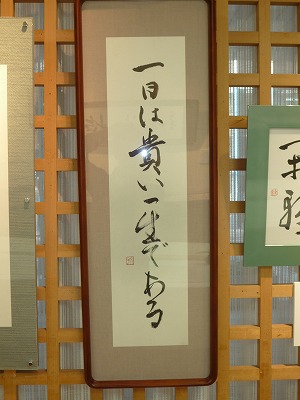 一日は貴い一生である